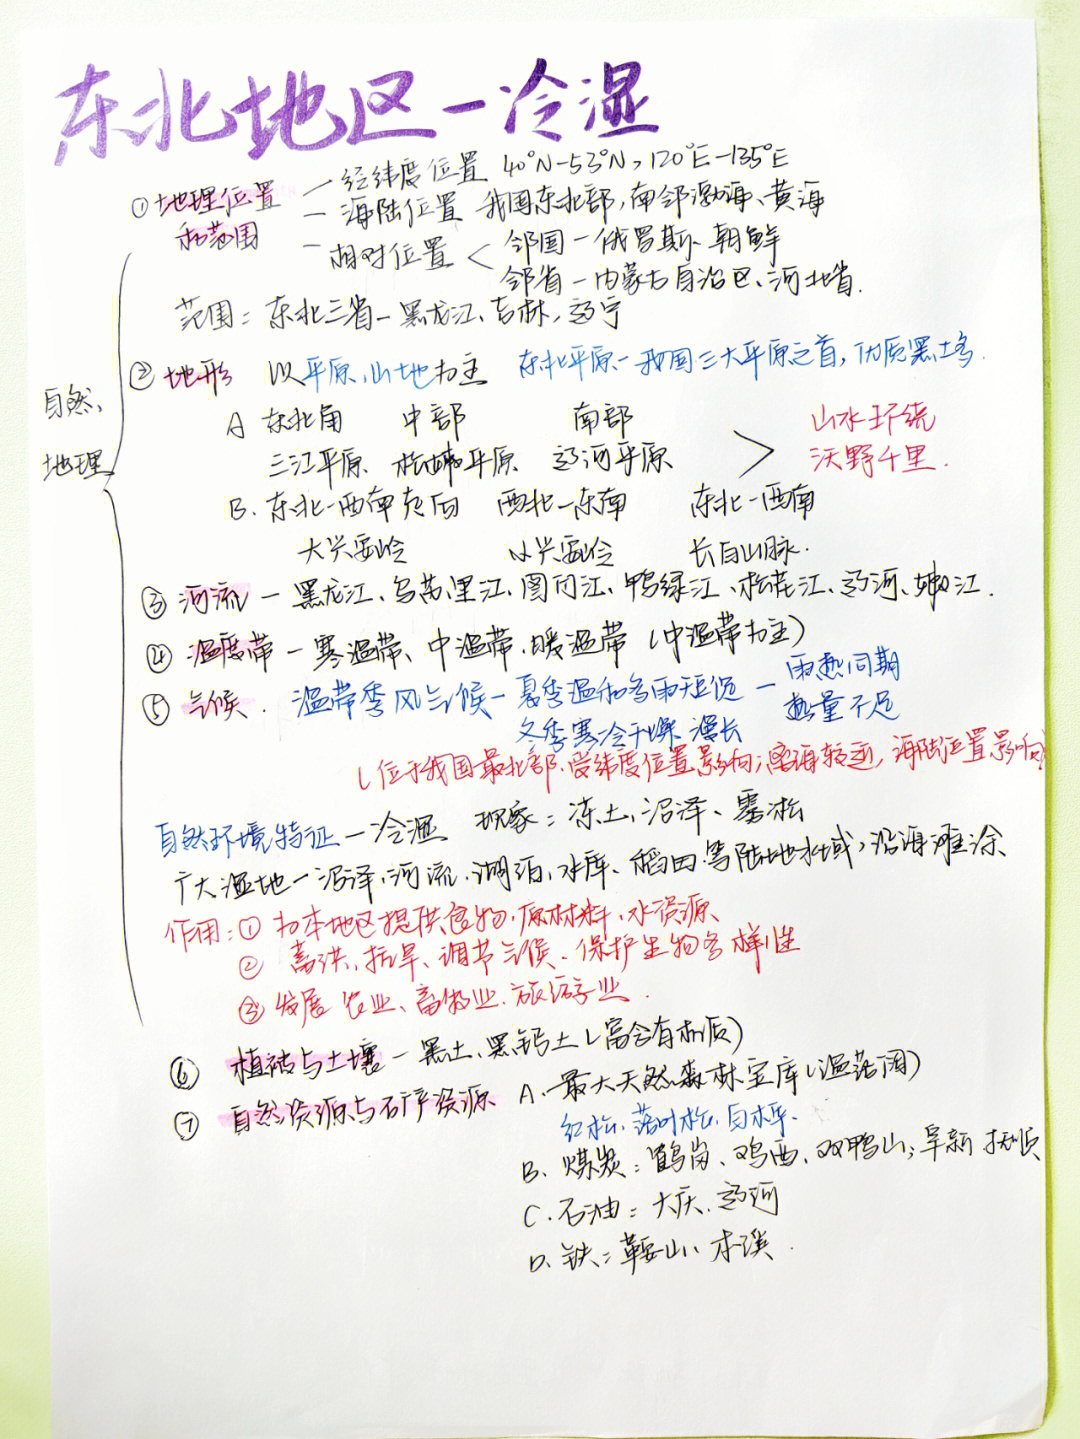 东北地区—冷湿
①地理位置和范围
—经纬度位置 40°N-53°N,120°E-135°E
—海陆位置 我国东北部,南邻渤海、黄海
—相对位置< 邻国—俄罗斯、朝鲜
邻省—内蒙古自治区、河北省.
范围:东北三省—黑龙江、吉林,辽宁
自然地理
②地形 以平原、山地为主 东北平原—我国三大平原之首,优质黑土多.
A 东北角 中部 南部
三江平原 松嫩平原 辽河平原 > 山水环绕
沃野千里.
B. 东北-西南走向 西北—东南 东北—西南
大兴安岭 小兴安岭 长白山脉.
③河流—黑龙江、乌苏里江、图们江、鸭绿江、松花江、辽河、嫩江.
④温度带—寒温带、中温带、暖温带(中温带为主)
⑤气候. 温带季风气候—夏季温和多雨短促—雨热同期
冬季寒冷干燥漫长 热量不足
(位于我国最北部、受纬度位置影响;离海较近,海陆位置影响)
自然环境特征—冷湿 现象:冻土、沼泽、雾凇
广大湿地—沼泽,河流、湖泊,水库、稻田等陆地水域,沿海滩涂
作用:①为本地区提供食物、原材料、水资源
② 蓄洪,抗旱、调节气候、保护生物多样性
③ 发展农业、畜牧业、旅游业.
⑥ 植被与土壤—黑土、黑钙土(富含有机质)
⑦ 自然资源与矿产资源
A. 最大天然森林宝库(温落阔)
红松、落叶松、白桦.
B. 煤炭:鹤岗、鸡西、双鸭山;阜新 抚顺
C. 石油:大庆、辽河
D. 铁:鞍山、本溪.